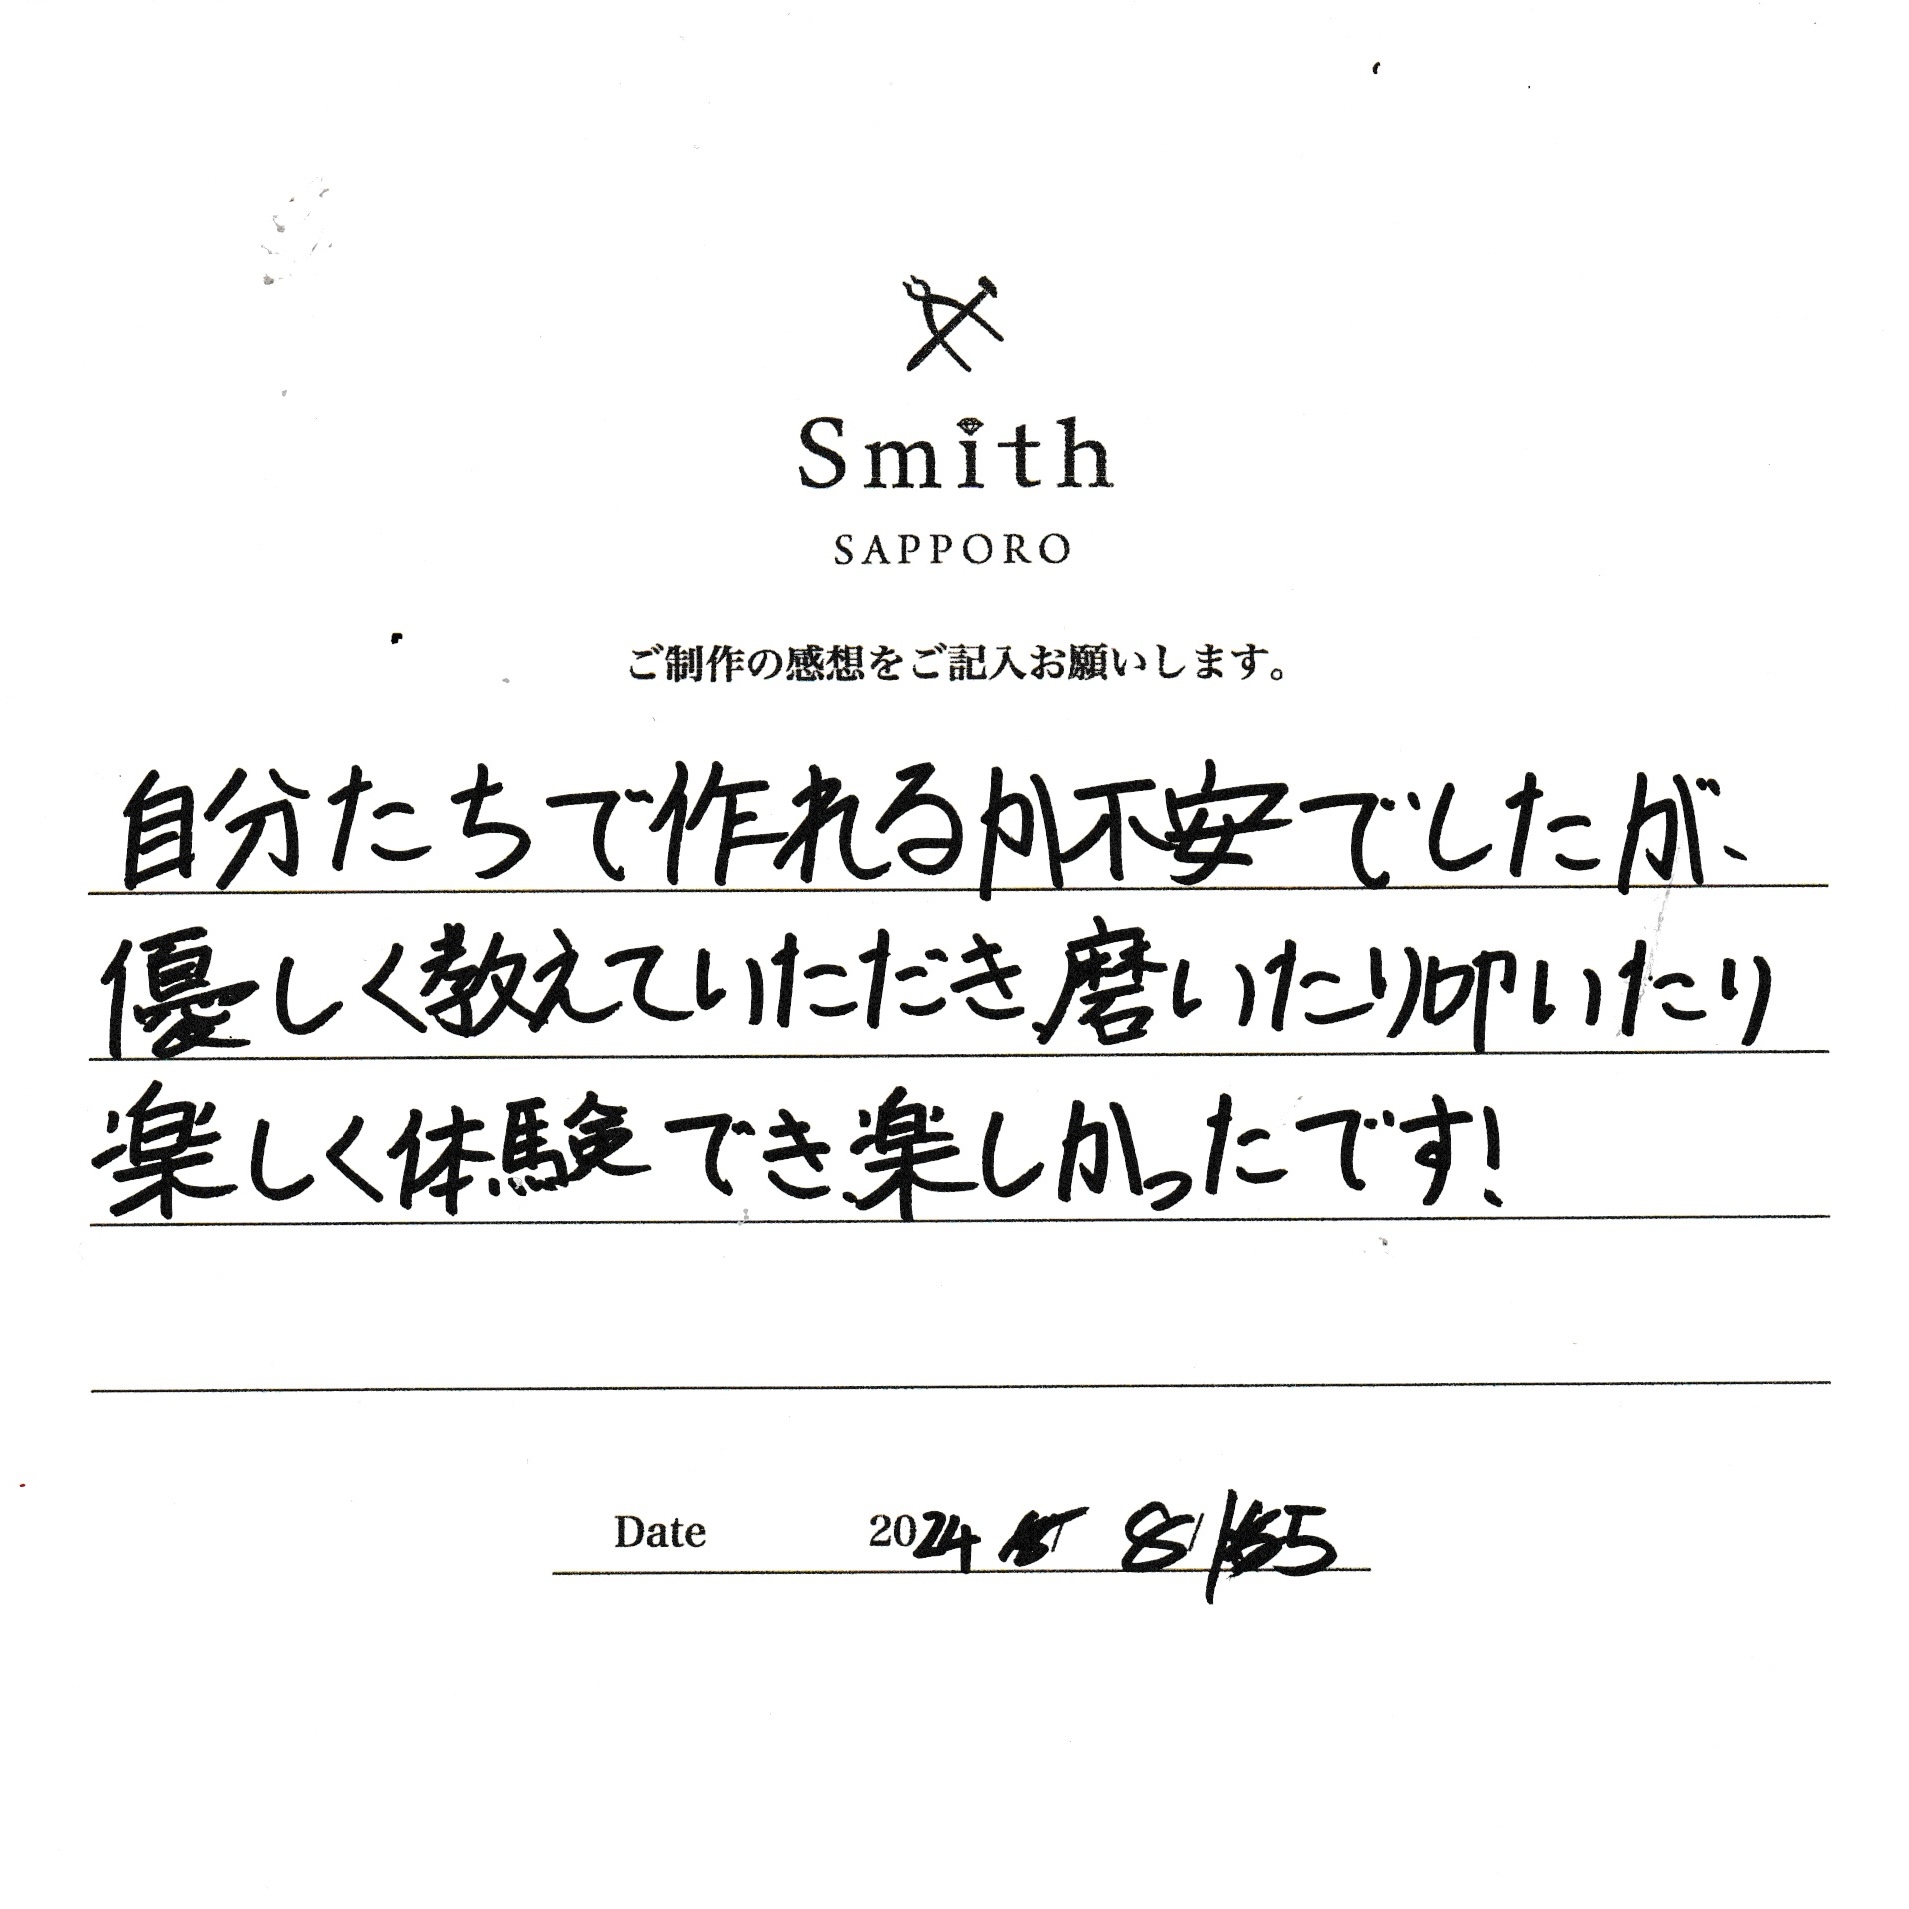 Smith
SAPPORO
ご制作の感想をご記入お願いします。
自分たちで作れるか不安でしたが、
優しく教えていただき、磨いたり叩いたり
楽しく体験でき、楽しかったです!
Date 2024 / 8/15